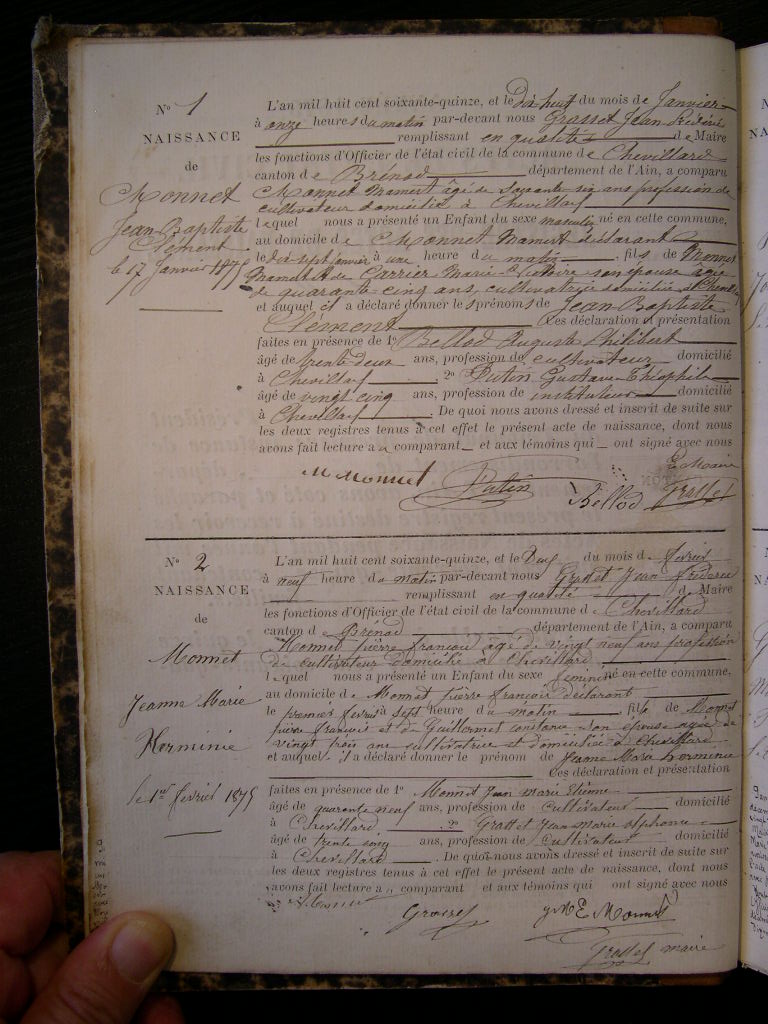 N° 1
NAISSANCE
de
Monnet
Jean Baptiste
Clément
le 17 Janvier 1875
L'an mil huit cent soixante-quinze, et le dix huit du mois de Janvier
à onze heures du matin par-devant nous Grosset Jean Frédéric
remplissant en qualité de Maire
les fonctions d'Officier de l'état civil de la commune de Chevillard
canton de Brénod département de l'Ain, a comparu
Monnet Mamert âgé de soixante six ans profession de
cultivateur domicilié à Chevillard
lequel nous a présenté un Enfant du sexe masculin né en cette commune,
au domicile de Monnet Mamert déclarant
le dix sept janvier à une heure du matin fils de Monnet
Mamert & de Carrier Marie son épouse âgée
de quarante cinq ans, cultivatrice domiciliée à Chevillard
et auquel il a déclaré donner les prénoms de Jean Baptiste
Clément Ces déclaration et présentation
faites en présence de 1° Bellod Auguste Philibert
âgé de trente deux ans, profession de cultivateur domicilié
à Chevillard 2° Putin Gustave Théophile
âgé de vingt cinq ans, profession de instituteur domicilié
à Chevillard. De quoi nous avons dressé et inscrit de suite sur
les deux registres tenus à cet effet le présent acte de naissance, dont nous
avons fait lecture au comparant et aux témoins qui ont signé avec nous
Le Maire
M Monnet Putin Bellod Grosset
N° 2
NAISSANCE
de
Monnet
Jeanne Marie
Herminie
le 1er février 1875
L'an mil huit cent soixante-quinze, et le Deux du mois de février
à neuf heure du matin par-devant nous Grosset Jean frédéric
remplissant en qualité de Maire
les fonctions d'Officier de l'état civil de la commune de Chevillard
canton de Brénod département de l'Ain, a comparu
Monnet pierre françois âgé de vingt neuf ans profession
de cultivateur domicilié à Chevillard
lequel nous a présenté un Enfant du sexe féminin né en cette commune,
au domicile de Monnet pierre françois déclarant
le premier février à sept heure du matin fille de Monnet
pierre françois et de Guillermet constance son épouse âgée de
vingt trois ans cultivatrice et domiciliée à Chevillard
et auquel il a déclaré donner le prénom de Jeanne Marie herminie
Ces déclaration et présentation
faites en présence de 1° Monnet Jean marie Etienne
âgé de quarante neuf ans, profession de cultivateur domicilié
à Chevillard 2° Grosset Jean Marie alphonse
âgé de trente cinq ans, profession de cultivateur domicilié
à Chevillard. De quoi nous avons dressé et inscrit de suite sur
les deux registres tenus à cet effet le présent acte de naissance, dont nous
avons fait lecture au comparant et aux témoins qui ont signé avec nous
Monnet Grosset E Monnet
Grosset maire